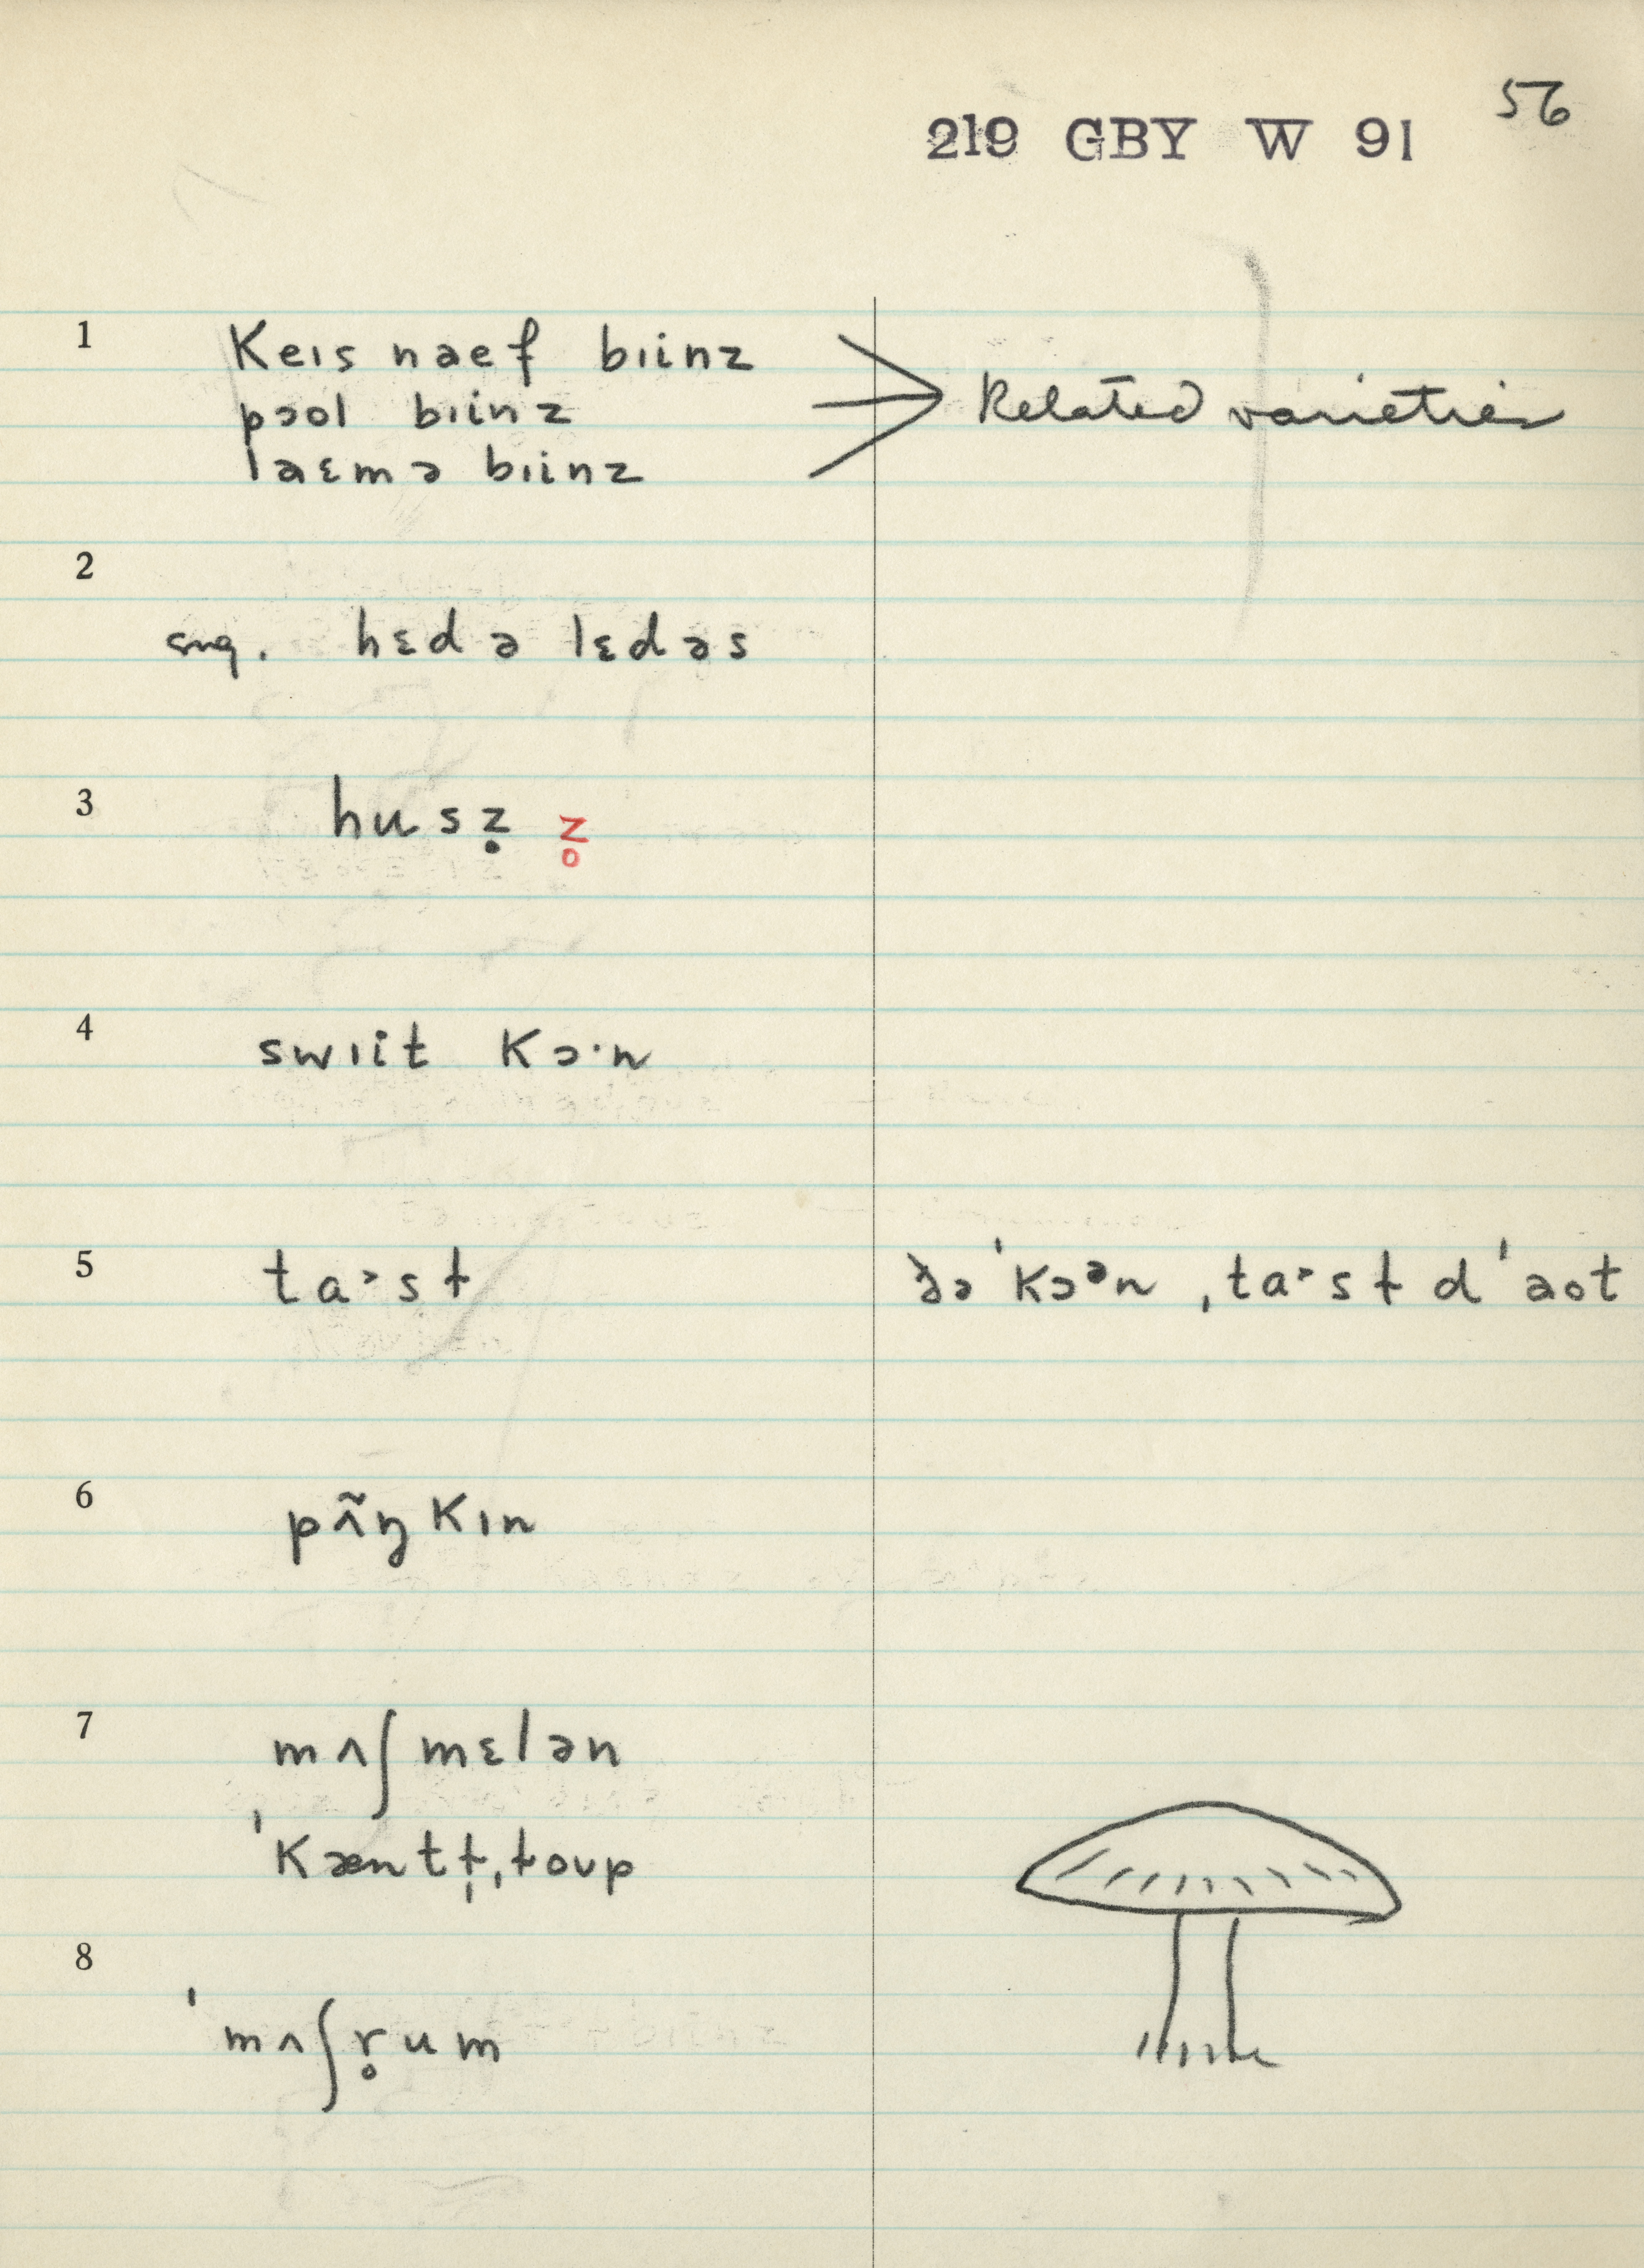 56
219 GBY W 91
1 Keɪs naef bɪinz
pɔol bɪinz
laɛmə bɪinz
Related varieties
2
sng. hɛd ə lɛdəs
3 husẓ z̥
4 swɪit Kɔ·n
5 ta˃st ðə ˈKɔᵊn ˌta˃st dˈaot
6 pʌ̃ŋKɪn
7 mʌʃmɛlən
ˈKæntt̩ˌtoup
8
ˈmʌʃr̥um